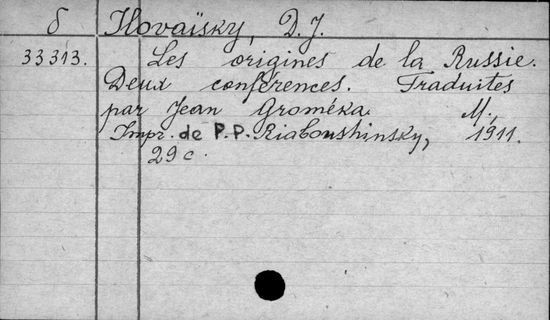 δ Ilovaïsky, D.J.
33313. Les origines de la Russie.
Deux conférences. Traduites
par Jean Groméka. M.,
Impr. de P.P. Riaboushinsky, 1911.
29 c.